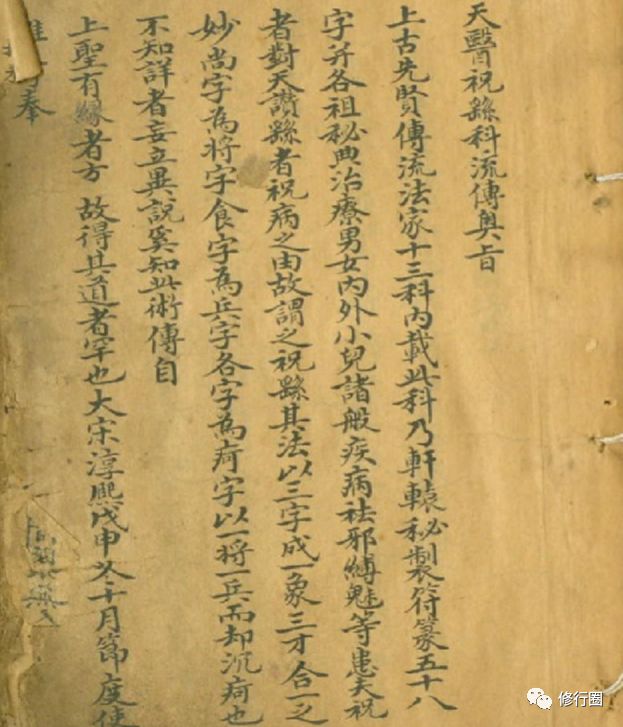 天醫祝繇科流傳奧旨
上古先賢傳流法家十三科內載此科乃軒轅秘製符篆五十八
字并各祖秘典治療男女內外小兒諸般疾病祛邪縛魅等患夫祝
者對天讚繇者祝病之由故謂之祝繇其法以三字成一象三才合一之
妙尚字為將字食字為兵字各字為疴字以一將一兵而却沉疴也
不知詳者妄立異說奚知此術傳自
上聖有緣者方故得其道者罕也大宋淳熙戊申冬十月節度使
奉
修行圈